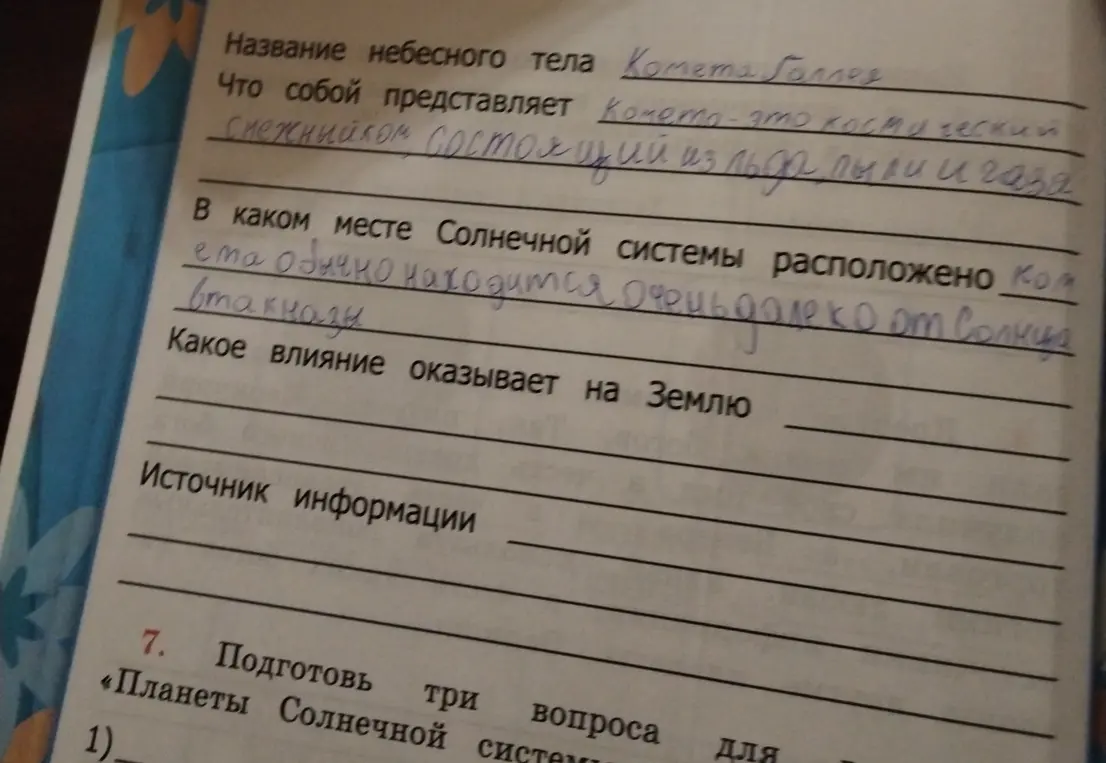 Название небесного тела Комета Галлея
Что собой представляет Комета - это космический
снежныйком, состоящий из льда, пыли и газа
В каком месте Солнечной системы расположено Ком
ета обычно находится очень далеко от Солнца
Какое влияние оказывает на Землю
Источник информации
7. Подготовь три вопроса для
«Планеты Солнечной систем
1)